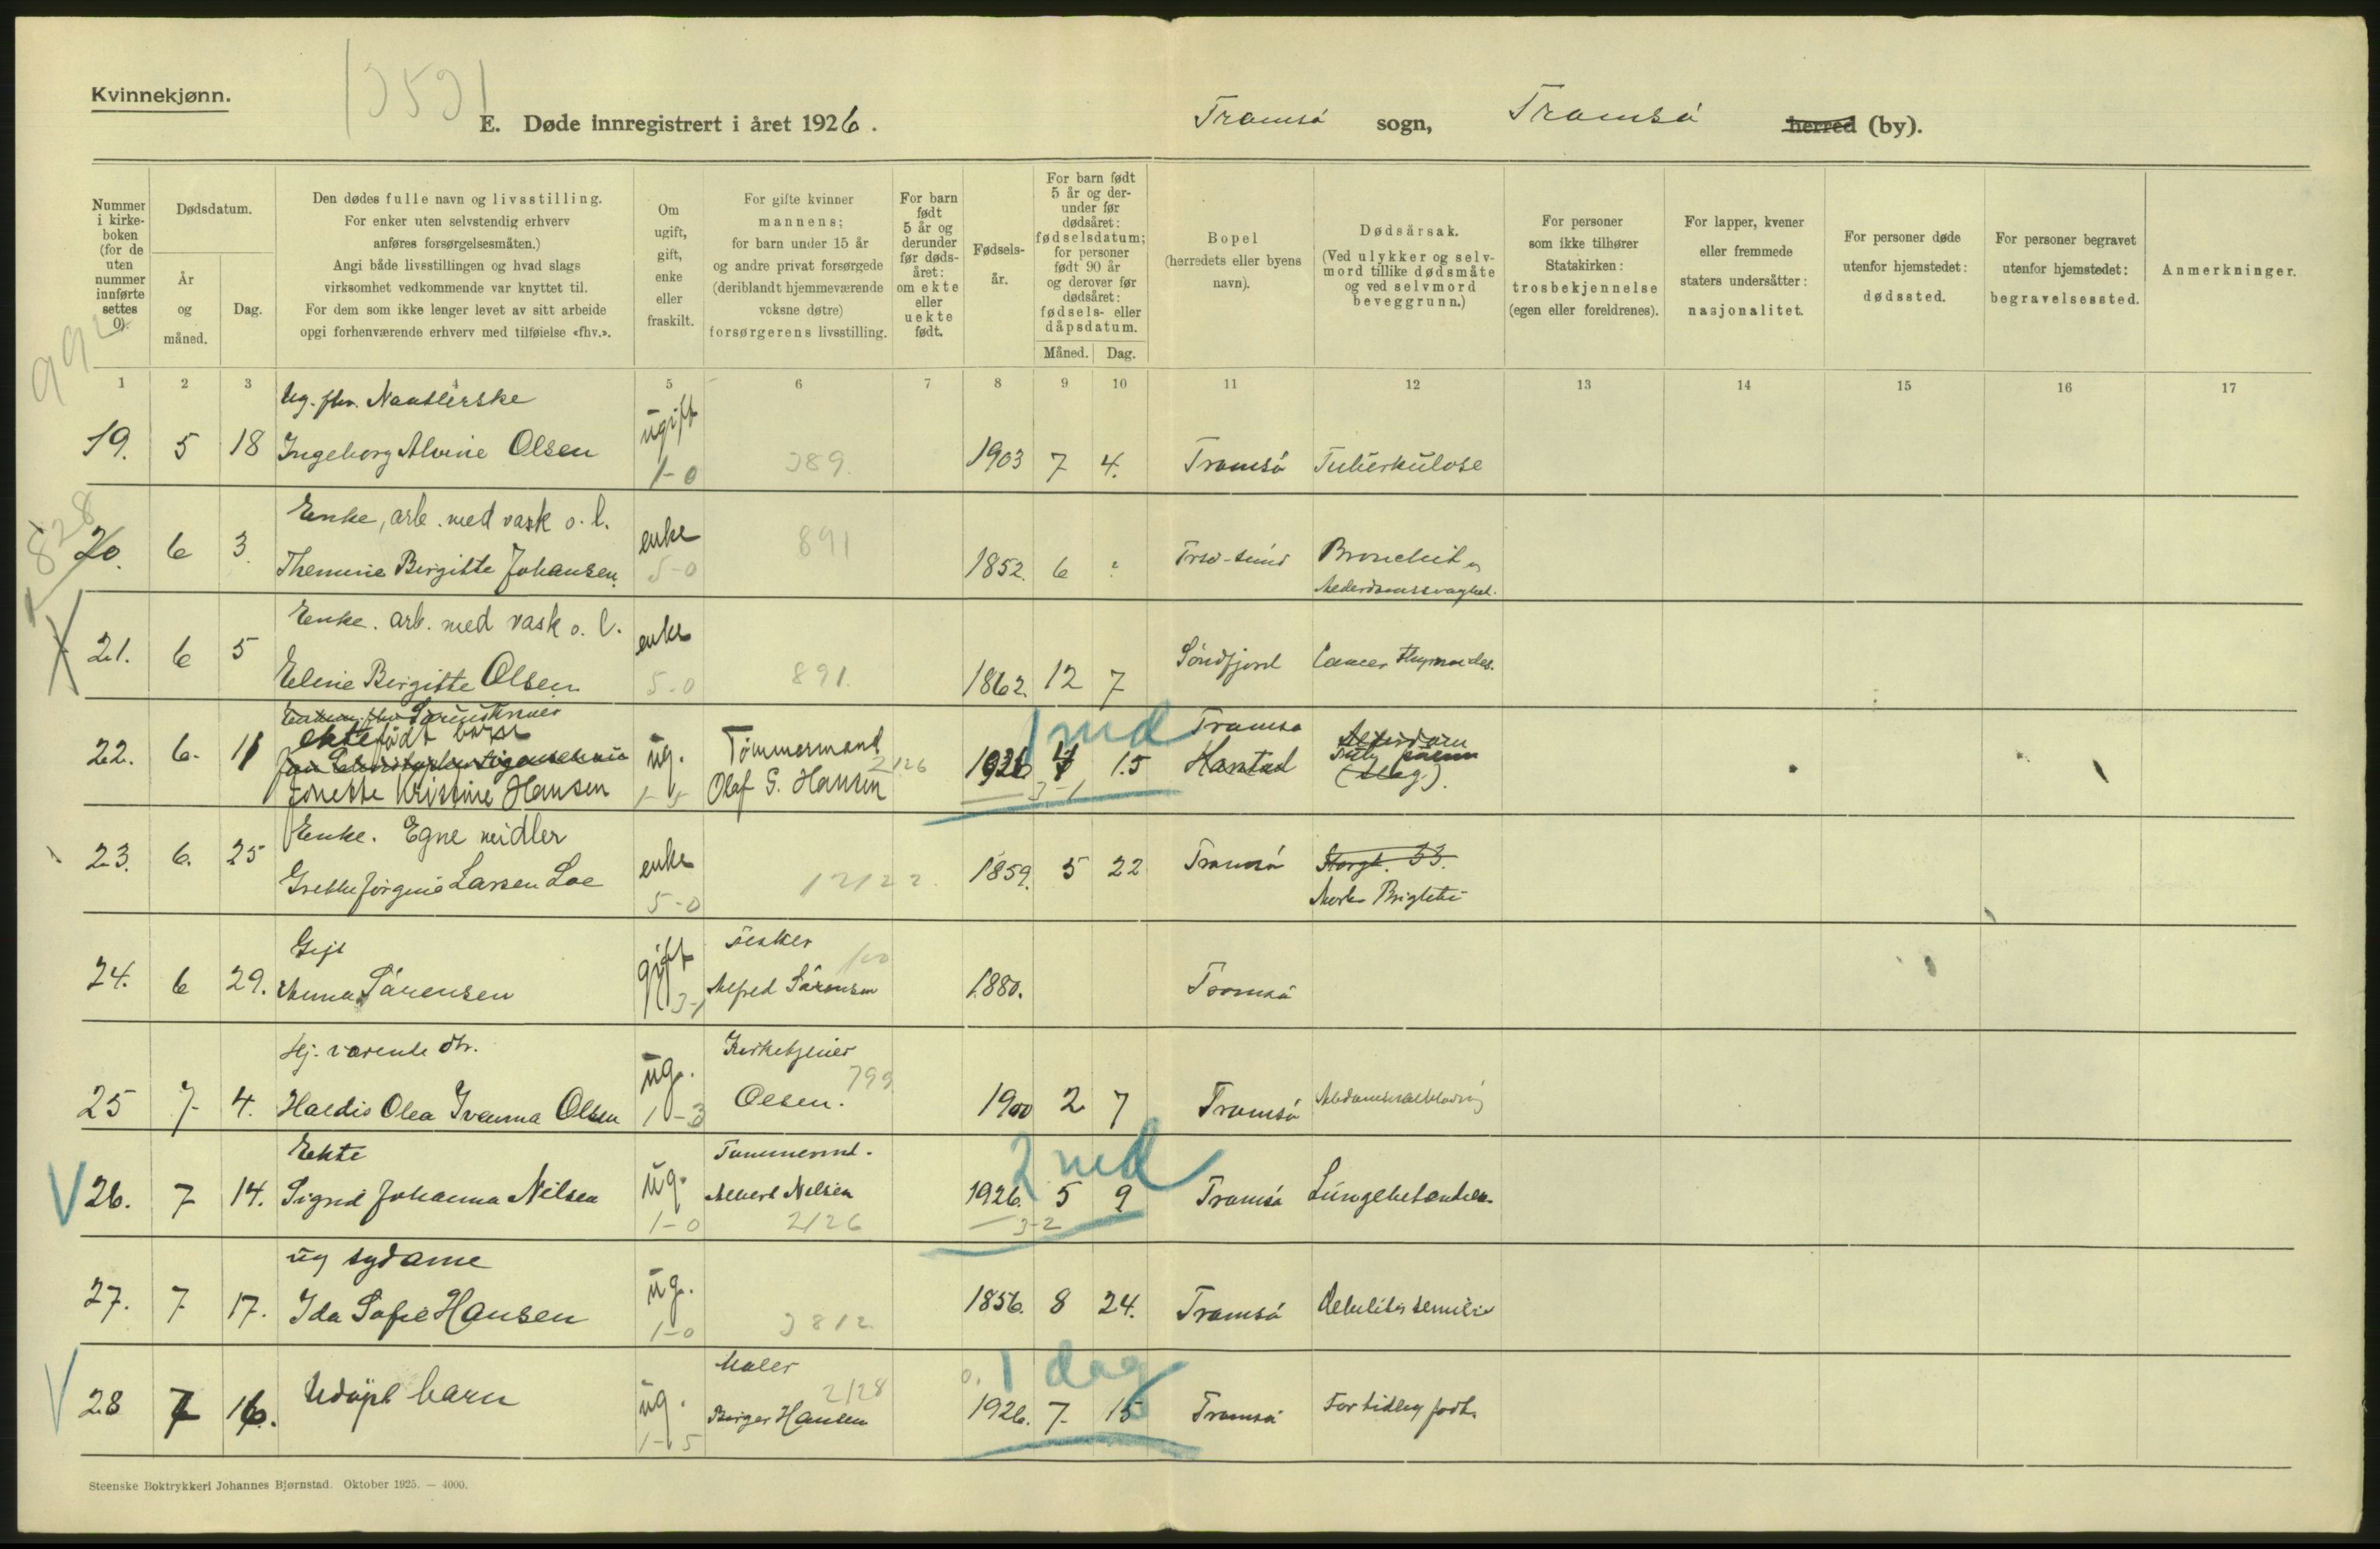 Kvinnekjønn.
E. Døde innregistrert i året 1926.
Tromsø sogn, Tromsø herred (by).
Nummer i kirkeboken (for de uten nummer innførte settes 0).
Dødsdatum.
År og måned.
Dag.
Den dødes fulle navn og livsstilling.
For enker uten selvstendig erhverv
anføres forsørgelsesmåten.)
Angi både livsstillingen og hvad slags
virksomhet vedkommende var knyttet til.
For dem som ikke lenger levet av sitt arbeide
opgi forhenværende erhverv med tilføielse «fhv.».
Om ugift, gift, enke eller fraskilt.
For gifte kvinner
mannens;
for barn under 15 år
og andre privat forsørgede
(deriblandt hjemmeværende
voksne døtre)
forsørgerens livsstilling.
For barn født 5 år og derunder før dødsåret: om ekte eller uekte født.
Fødselsår.
For barn født 5 år og derunder før dødsåret: fødselsdatum; for personer født 90 år og derover før dødsåret: fødsels- eller dåpsdatum.
Måned. Dag.
Bopel
(herredets eller byens
navn).
Dødsårsak.
(Ved ulykker og selvmord tillike dødsmåte og ved selvmord beveggrunn.)
For personer
som ikke tilhører
Statskirken:
trosbekjennelse
(egen eller foreldrenes).
For lapper, kvener
eller fremmede
staters undersåtter:
nasjonalitet.
For personer døde
utenfor hjemstedet:
dødssted.
For personer begravet
utenfor hjemstedet:
begravelsessted.
Anmerkninger.
1 2 3 4 5 6 7 8 9 10 11 12 13 14 15 16 17
Ug. fhv.
19. 5 18 Ingeborg Alvine Olsen ugift 1-0 389. 1903 7 4. Tromsø Tuberkulose
Enke, arb. med vask o. l.
20. 6 3. Birgitte Johansen. enke 5-0 891 1852. 6 ? Bronchit
Enke. arb. med vask o. l.
21. 6 5 Eline Birgitte Olsen enke 5-0 891. 1862. 12 7 Cancer
ektefødt barn
22. 6. 11 Jonette Kristine Hansen ug. Tømmermand Olaf G. Hansen 2126 1926 1 md 15 Tromsø Harstad
3-1
Enke. Egne midler
23. 6. 25 Larsen Loe enke 5-0 12122. 1859. 5 22 Tromsø Storgt. 33.
Morb. Brightii
Gift
24. 6 29. Anna Sørensen gift 3-1 Alfred Sørensen 1880. Tromsø
Hj. værende dtr.
25 7 4. Haldis Olea Ivanna Olsen ug. 1-3 Kirketjener Olsen. 799 1900 2 7 Tromsø
Ekte
26. 7 14. Sigrid Johanna Nilsen ug. 1-0 Tømmermd. Albert Nilsen 2126 1926. 2 md 5 9 Tromsø
3-2
ug sydame
27. 7 17. Ida Sofie Hansen ug. 1-0 3812 1856. 8 24. Tromsø Debilitas senilis
28 7 16. Udøpt barn ug. 1-5 Maler Birger Hansen 2128 1926. 1 dag 7. 15 Tromsø For tidlig født.
Steenske Boktrykkeri Johannes Bjørnstad. Oktober 1925. — 4000.